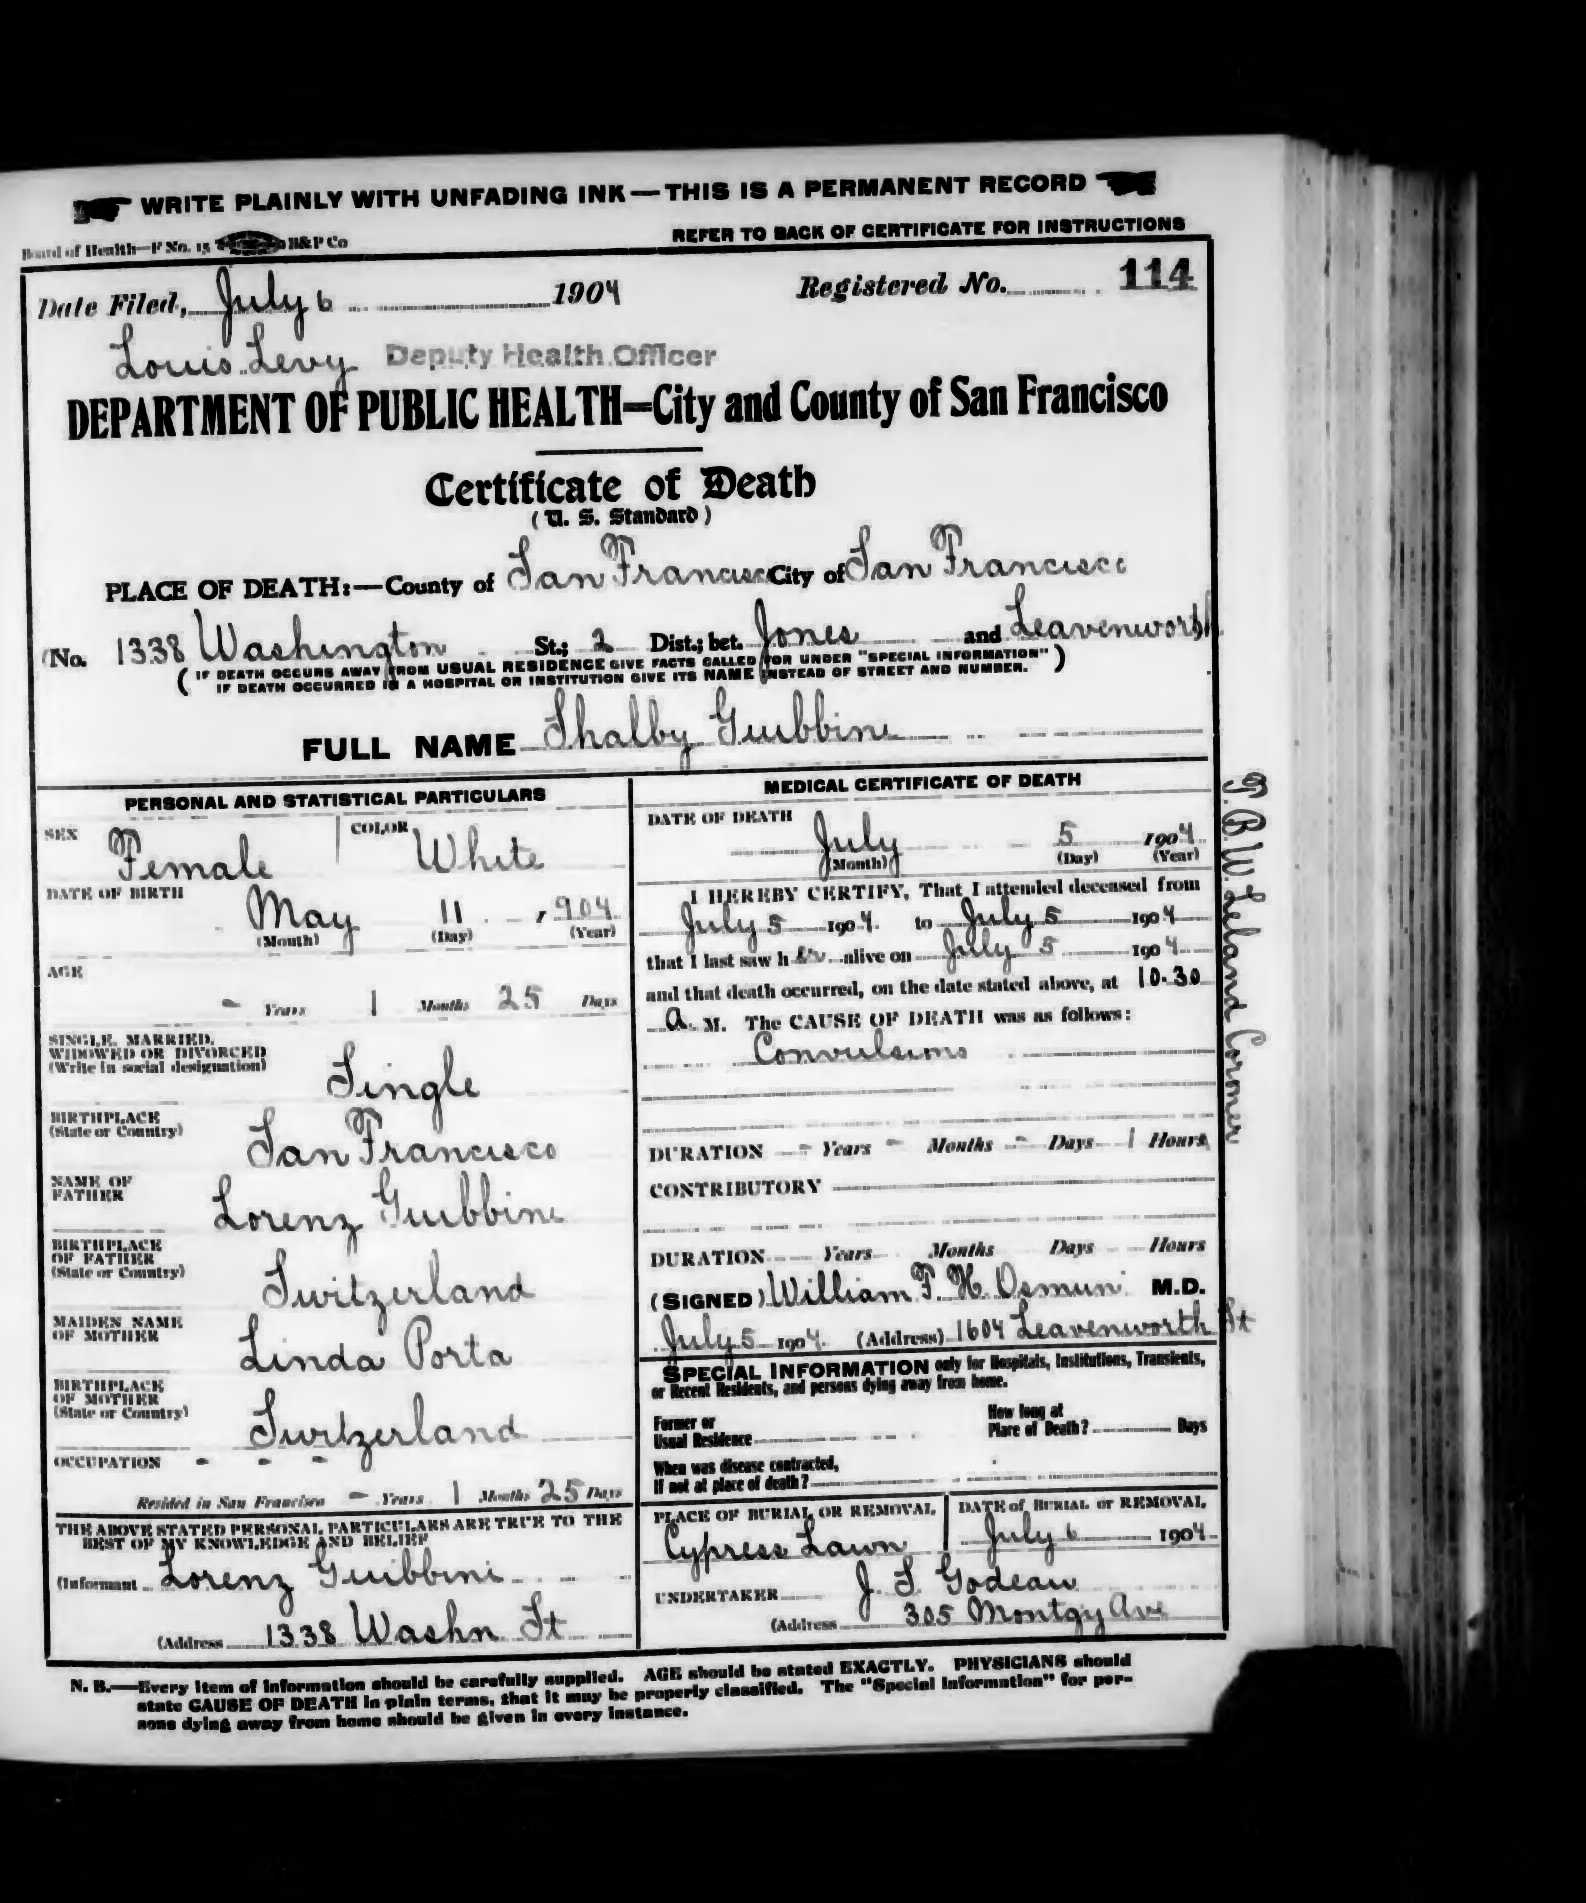 WRITE PLAINLY WITH UNFADING INK—THIS IS A PERMANENT RECORD
Board of Health—F No. 15 B&P Co
REFER TO BACK OF CERTIFICATE FOR INSTRUCTIONS
Date Filed, July 6 1904 Registered No. 114
Louis Levy Deputy Health Officer
DEPARTMENT OF PUBLIC HEALTH—City and County of San Francisco
Certificate of Death
(U. S. Standard)
PLACE OF DEATH:—County of San Francisco City of San Francisco
(No. 1338 Washington St.; 2 Dist.; bet. Jones and Leavenworth
(IF DEATH OCCURS AWAY FROM USUAL RESIDENCE GIVE FACTS CALLED FOR UNDER "SPECIAL INFORMATION"
IF DEATH OCCURRED IN A HOSPITAL OR INSTITUTION GIVE ITS NAME INSTEAD OF STREET AND NUMBER.)
FULL NAME Shalby Guibbini
PERSONAL AND STATISTICAL PARTICULARS
SEX Female COLOR White
DATE OF BIRTH
May 11, 904
(Month) (Day) (Year)
AGE
- Years 1 Months 25 Days
SINGLE, MARRIED,
WIDOWED OR DIVORCED
(Write in social designation) Single
BIRTHPLACE
(State or Country) San Francisco
NAME OF
FATHER Lorenz Guibbini
BIRTHPLACE
OF FATHER
(State or Country) Switzerland
MAIDEN NAME
OF MOTHER Linda Porta
BIRTHPLACE
OF MOTHER
(State or Country) Switzerland
OCCUPATION - - -
Resided in San Francisco - Years 1 Months 25 Days
THE ABOVE STATED PERSONAL PARTICULARS ARE TRUE TO THE
BEST OF MY KNOWLEDGE AND BELIEF
(Informant Lorenz Guibbini
(Address 1338 Washn St
MEDICAL CERTIFICATE OF DEATH
DATE OF DEATH
July 5 1904
(Month) (Day) (Year)
I HEREBY CERTIFY, That I attended deceased from
July 5 1904 to July 5 1904
that I last saw her alive on July 5 1904
and that death occurred, on the date stated above, at 10.30
a. M. The CAUSE OF DEATH was as follows:
Convulsions
DURATION - Years - Months - Days 1 Hours
CONTRIBUTORY
DURATION Years Months Days Hours
(SIGNED) William F. H. Osmun M.D.
July 5 1904 (Address) 1604 Leavenworth St
SPECIAL INFORMATION only for Hospitals, Institutions, Transients,
or Recent Residents, and persons dying away from home.
Former or
Usual Residence
How long at
Place of Death? Days
When was disease contracted,
If not at place of death?
PLACE OF BURIAL OR REMOVAL
Cypress Lawn
DATE of BURIAL or REMOVAL
July 6 1904
UNDERTAKER J. S. Godeau
(Address 305 Montgy Ave
T. B. W. Leland Coroner
N. B.—Every item of information should be carefully supplied. AGE should be stated EXACTLY. PHYSICIANS should
state CAUSE OF DEATH in plain terms, that it may be properly classified. The "Special Information" for per-
sons dying away from home should be given in every instance.